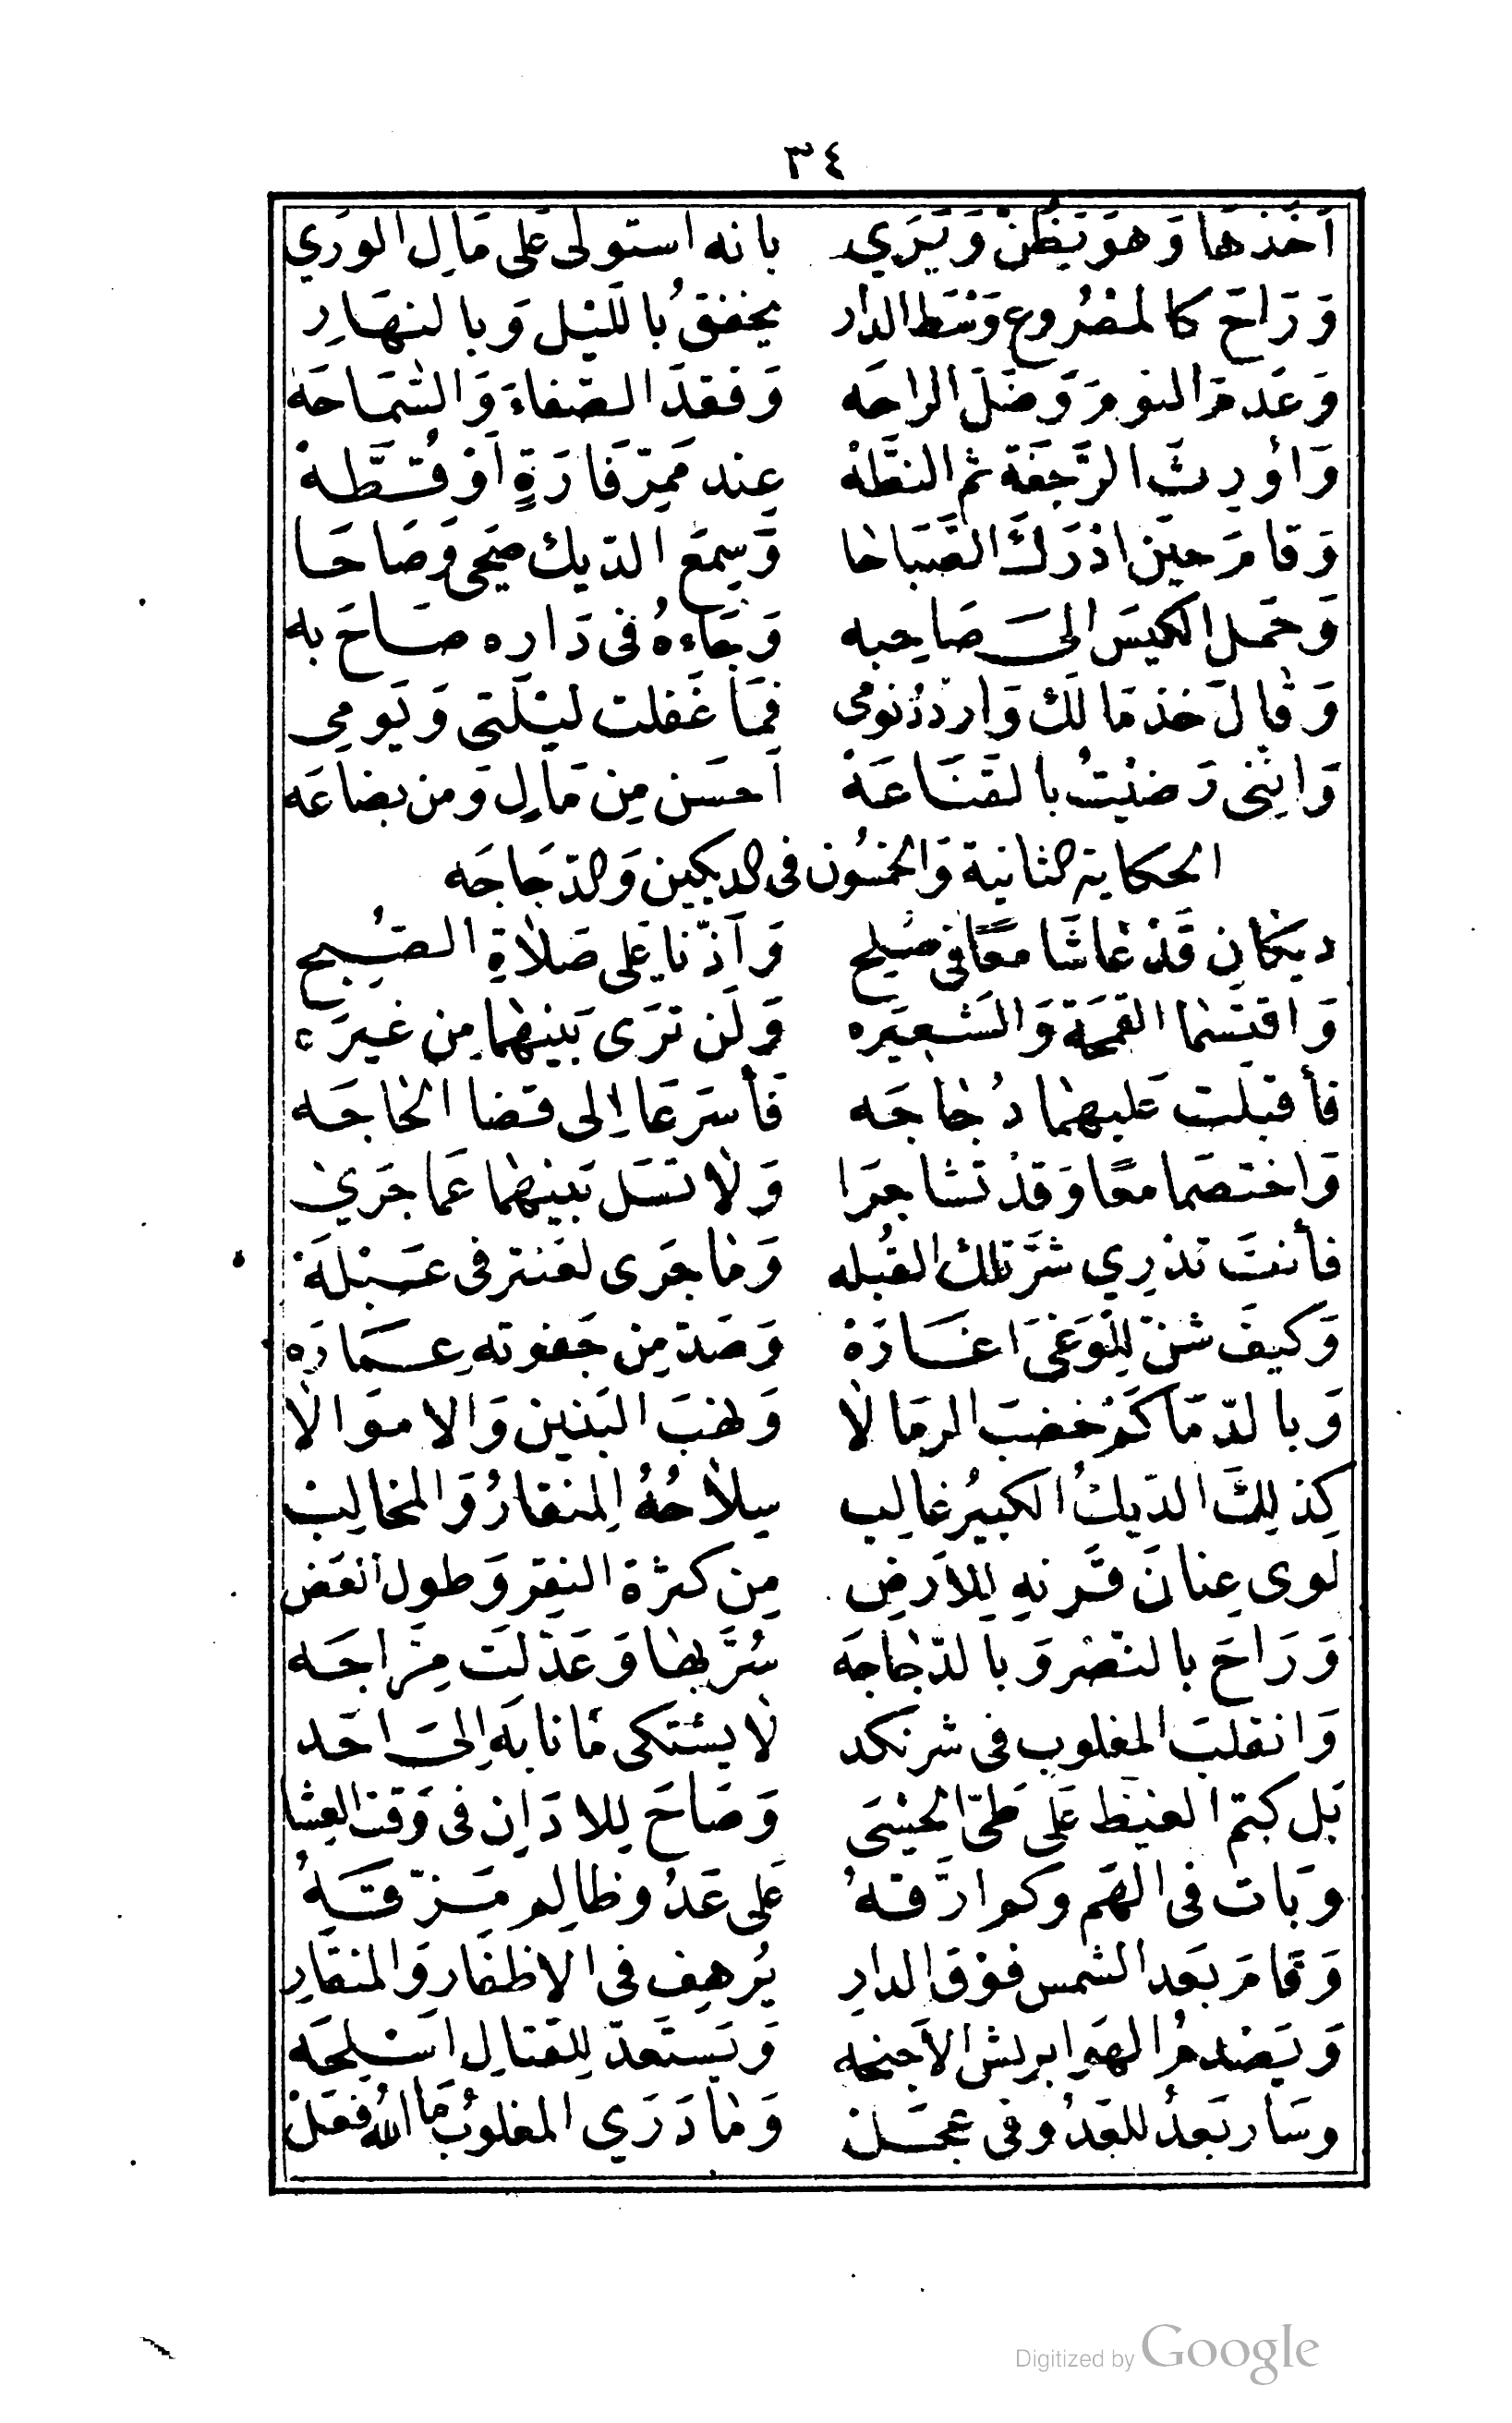 ٣٤
أَخَذَهَا وَهوَ يَظُنْ وَيَرَي بانه استولى عَلى مَالِ الوَرَي
وَرَاحَ كالمَصْرُوع وَسْطَ الدَار يخفقُ باللَيْل وَبالنهَارِ
وَعَدمَ النومَ وَضَلَ الراحَه وَفقدَ الصّفاءَ وَالسَّمَاحَهْ
وَأورِثَ الرَّجفَة ثم النطَّهْ عِند مَمِرّ فَارَةٍ اَو قُطَّهْ
وَقامَ حِينَ ادْرَكَ الصَّبَاحَا وَسِمعَ الدّيك ضحى وَصَاحَا
وَحَمل الكيسَ الىَ صَاحِبه وَجَاءهُ فى دَاره صَاحَ به
وَقالَ خذ مَالَكْ وَاردُدْ نومى فمَا غَفلت ليْلَتى وَيَومِى
وَانني رَضيْتُ بالقَنَاعَهْ اَحسَن مِن مَالٍ وَمن بضاعَه
الحكاية الثانية وَالخمسُون فى الديكين وَالدّجَاجَه
ديكانِ قَدْ عَاشَا مَعًا فى صُلِح وَأذّنا عَلى صَلاَةِ الصُبحِ
وَاقتَسَما القمحَة وَالشَعِيَره وَلَن تَرَى بَينهمَا مِن غيرَه
فأقبَلَت عَليهمَا دُجَاجَه فَأسرَعَا اِلى قضا الحَاجَه
وَاختصَما معًا وَقدْ تَشاجرَا وَلاَ تسَل بَينهمَا عَما جَرَيْ
فأنتَ تدْرِي شرَّ تلك القُبله وَمَا جَرَى لعَنتر فى عَبْلَهْ
وَكيفَ شنّ لِلْوَغىَ اغَارَهْ وَصَدّ مِن جَفوتهِ عِمَارَه
وَبالدّمَا كَمْ خضبَ الرمَالاَ وَنهَبَ البَنين وَالاموَالاَ
كِذلِكَ الدّيكُ الكبيرُ غالِب سِلاَحُهُ المِنقارُ وَالمخَالِبْ
لَوى عِنانَ قَرنهِ لِلاَرضِ مِن كثرة النقِر وَطول العَضِ
وَرَاحَ بالنَصْر وَبالدّجَاجَه سُرَّ بهَا وَعَدّلَت مِزَاجَه
وَانقلبَ المغلوب فى شر نكد لاَ يشتكى مَا نابَهَ اِلىَ احَد
بَل كتم الغيَظ عَلى طَىّ الحَشىَ وَصَاحَ لِلاذَانِ فى وَقت العِشا
وبَات فى الهَم وكم ارَّقهُ عَلى عَدُو ظالِم مَزّقَهُ
وَقَامَ بَعَد الشمس فَوْقَ الدارِ يُرهِف فى الاظفَارِ وَالمنقَارِ
وَيَصْدمُ الهَوا بريش الاَجنحه وَيَستَعدّ لِلقتالِ اسْلِحَه
وسَار بَعدُ للعَدُو فى عجَلْ وَمَا دَرَي المغلوُب مَا الله فَعَلْ
Digitized by Google